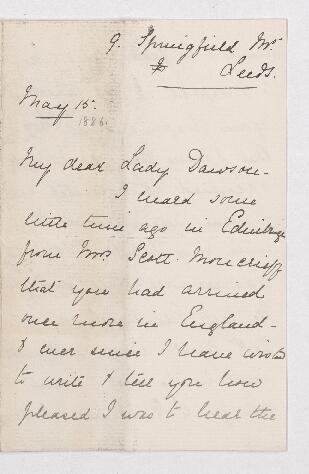 9. Springfield Mt
Leeds.
May 15.
1886.
My dear Lady Dawson -
I heard some
little time ago in Edinburgh
from Mrs. Scott. Moncrieff
that you had arrived
once more in England -
& ever since I have wished
to write & tell you how
pleased I was to hear the